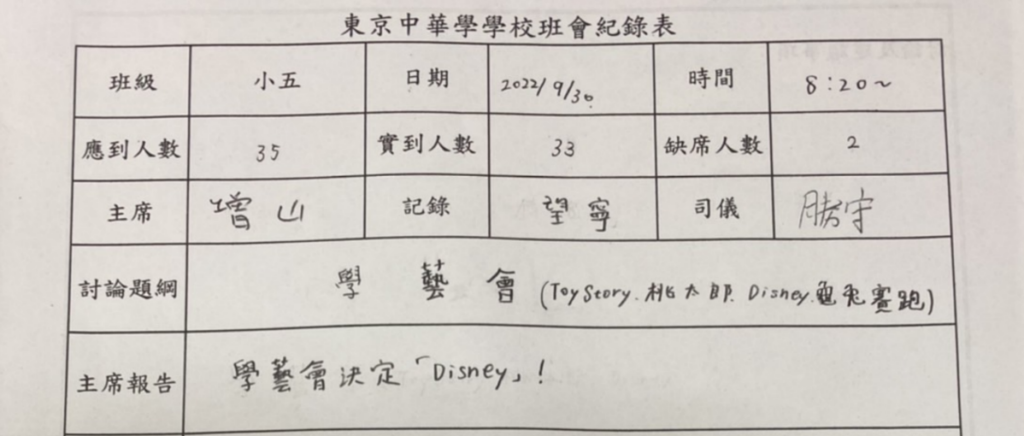 東京中華學學校班會紀錄表
班級 小五 日期 2022/9/30 時間 8:20~
應到人數 35 實到人數 33 缺席人數 2
主席 增山 記錄 望寧 司儀 勝守
討論題綱 學藝會 (ToyStory.桃太郎.Disney.龜兔賽跑)
主席報告 學藝會決定「Disney」!